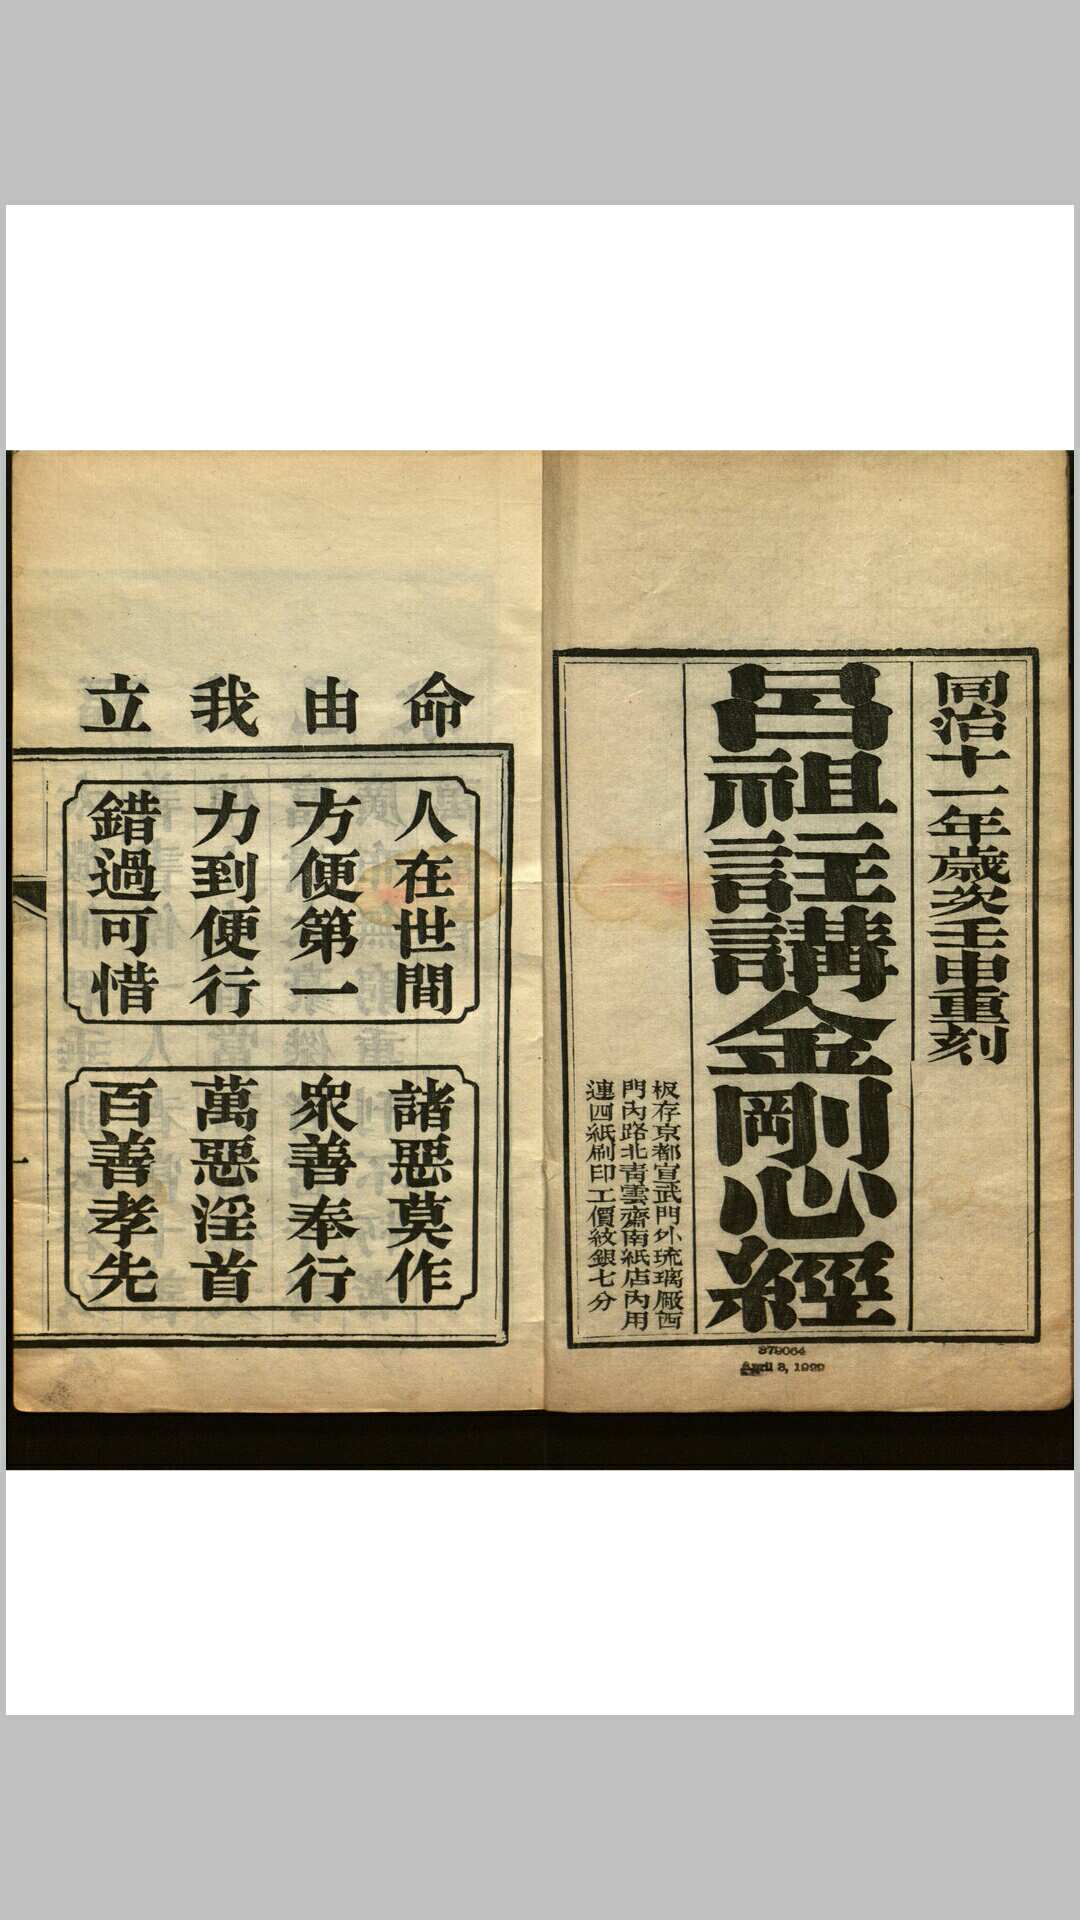 同治十一年歲次壬申重刻
呂祖註講金剛心經
板存京都宣武門外琉璃厰西
門內路北青雲齋南紙店內用
連四紙刷印工價紋銀七分
379064
April 3, 1929
命由我立
人在世間
方便第一
力到便行
錯過可惜
諸惡莫作
衆善奉行
萬惡淫首
百善孝先